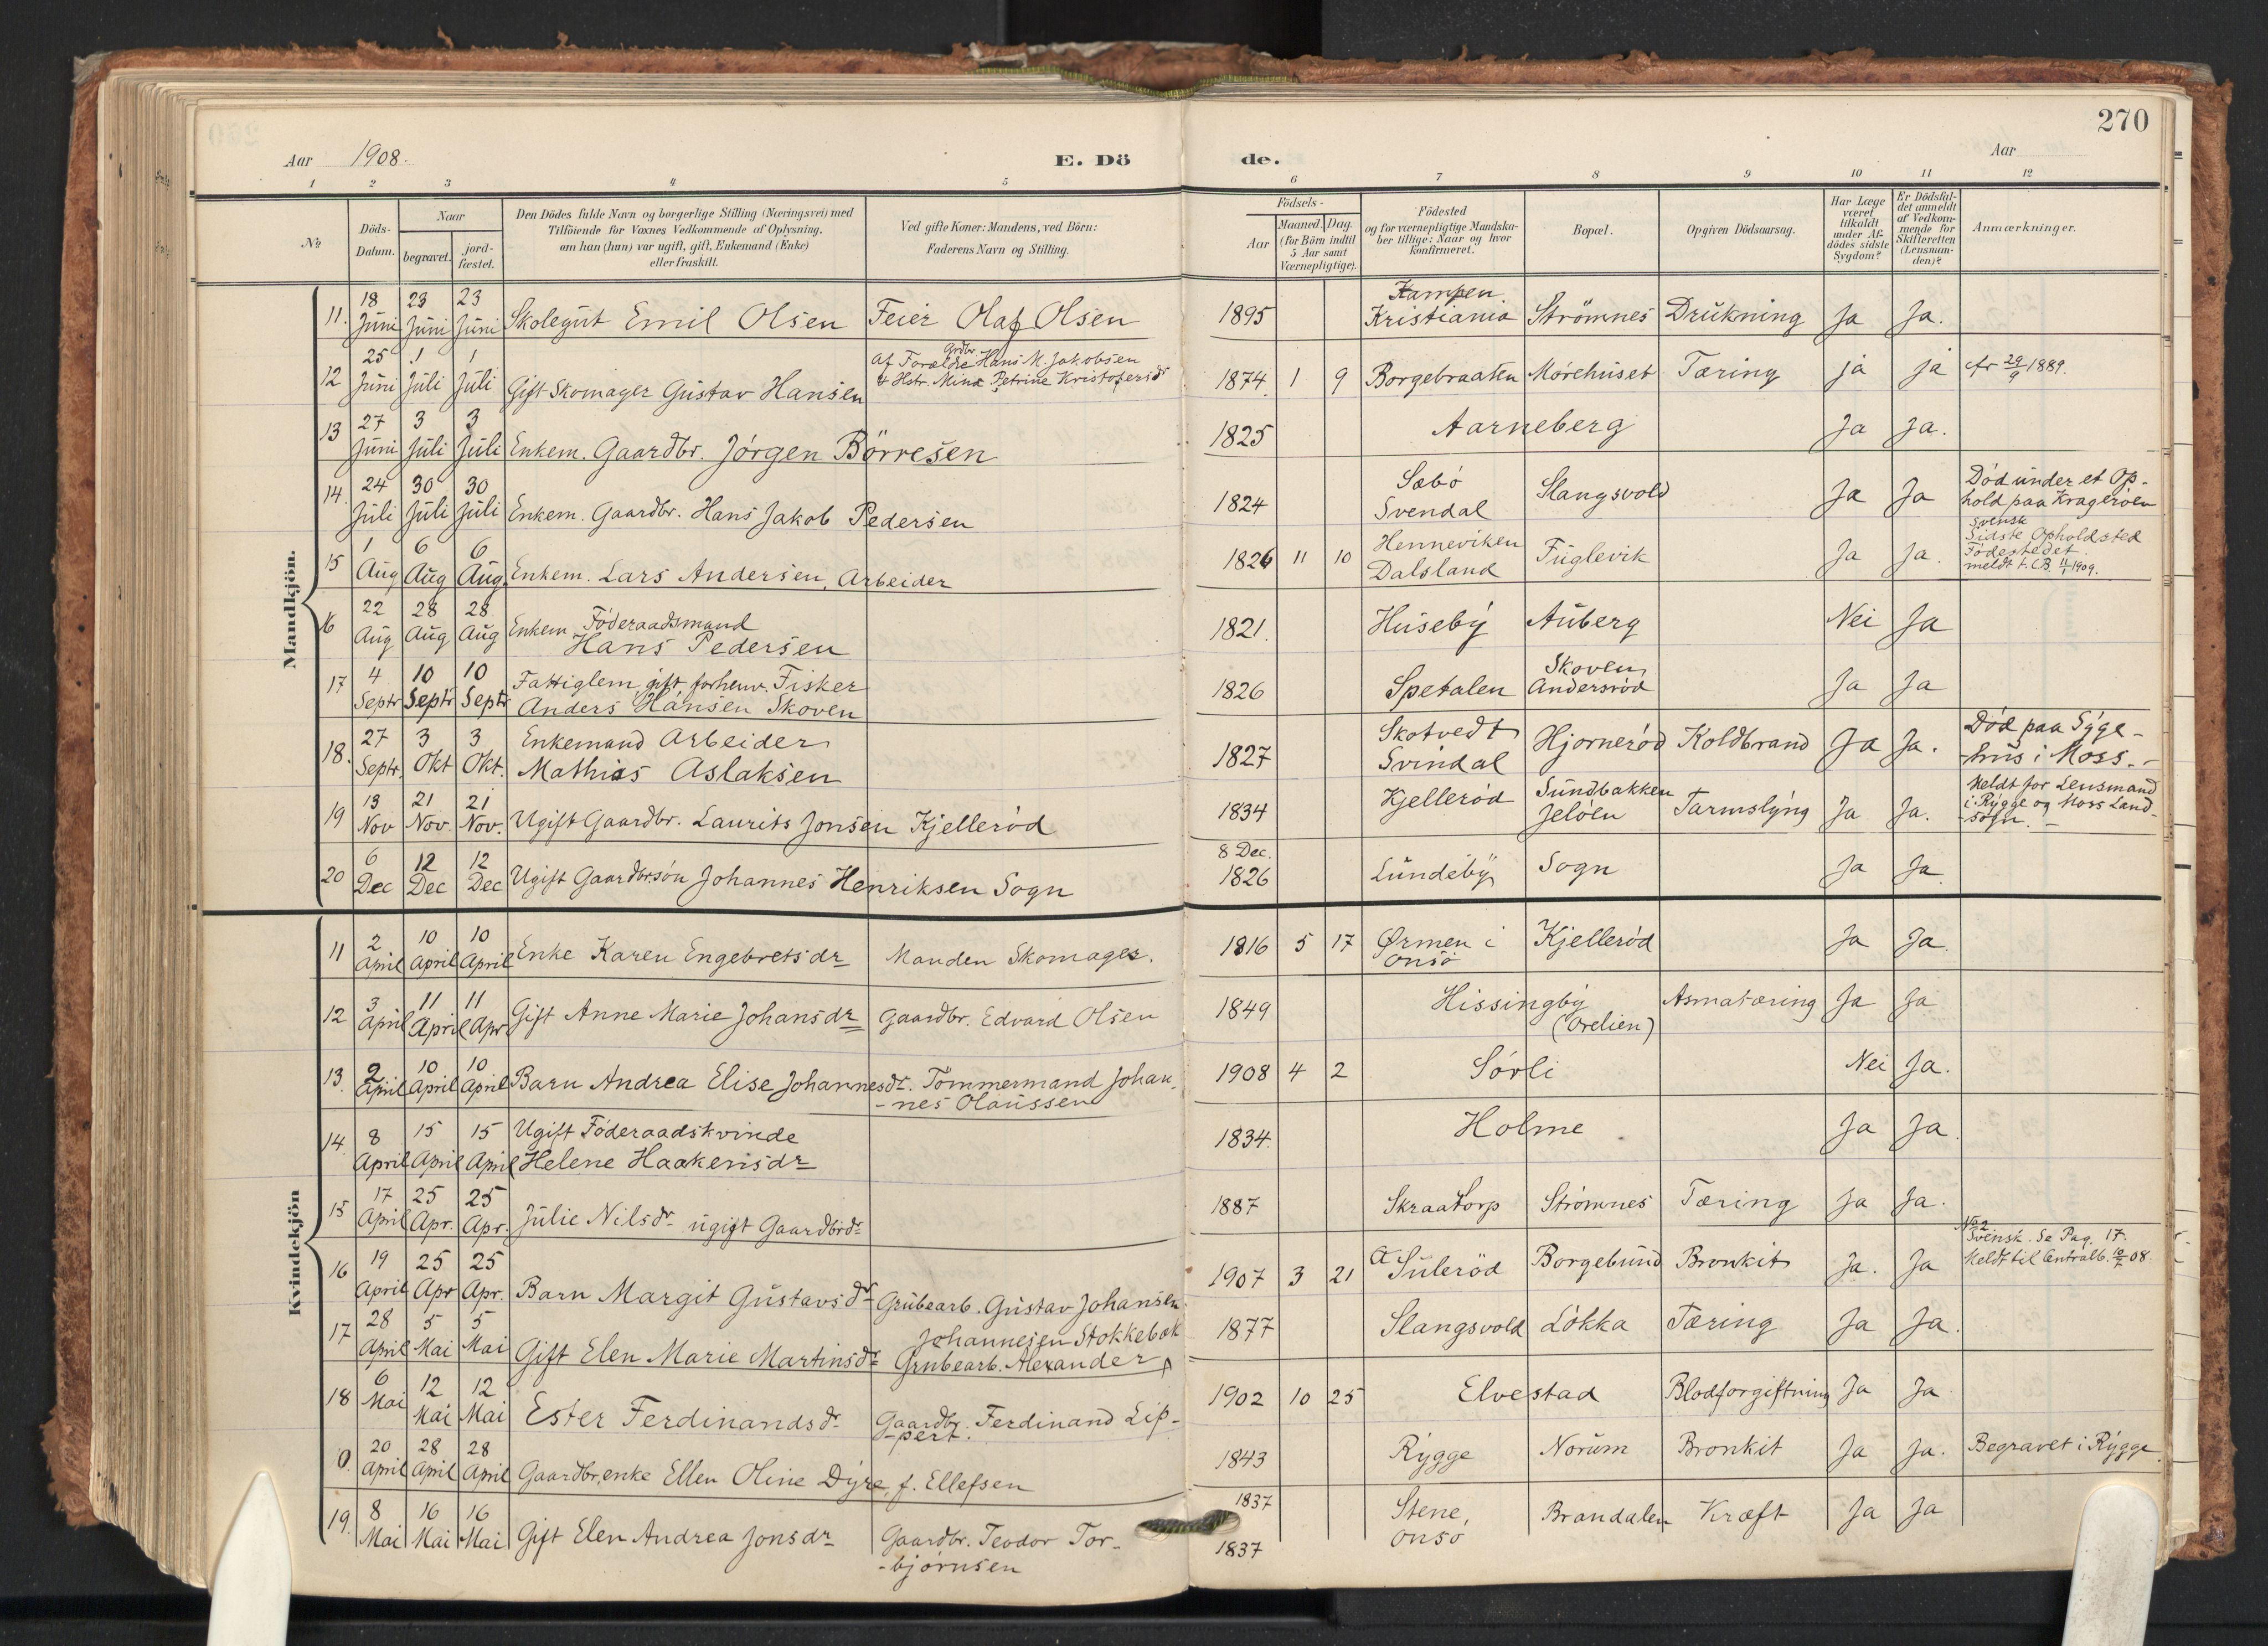 270
Aar 1908.
E. Dö
de.
Aar
1 2 3 4 5 6 7 8 9 10 11 12
No
Döds-Datum.
Naar
begravet.
jord-fæstet.
Den Dödes fulde Navn og borgerlige Stilling (Næringsvei) med
Tilföiende for Voxnes Vedkommende af Oplysning,
om han (hun) var ugift, gift, Enkemand (Enke)
eller fraskilt.
Ved gifte Koner: Mandens, ved Börn:
Faderens Navn og Stilling.
Födsels-
Aar
Maaned. Dag.
(for Börn indtil
5 Aar samt
Værnepligtige).
Födested
og for værnepligtige Mandska-
ber tillige: Naar og hvor
konfirmeret.
Bopæl.
Opgiven Dödsaarsag.
Har Læge
været
tilkaldt
under Af-
dödes sidste
Sygdom?
Er Dödsfal-
det anmeldt
af Vedkom-
mende for
Skifteretten
(Lensman-
den)?
Anmærkninger.
Mandkjön.
11. 18 Juni 23 Juni 23 Juni Skolegut Emil Olsen Feier Olaf Olsen 1895 Kampen Kristiania Strömnes Drukning Ja Ja.
12 25 Juni 1 Juli 1 Juli Gift Skomager Gustav Hansen Af Forældre Grdbr. Hans M. Jakobsen
& Hstr. Mina Petrine Kristofersdr 1874 1 9 Borgebraaten Mörehuset Tæring ja ja fr 29/9 1889.
13 27 Juni 3 Juli 3 Juli Enkem. Gaardbr. Jörgen Börresen 1825 Aarneberg Ja Ja.
14. 24 Juli 30 Juli 30 Juli Enkem. Gaardbr. Hans Jakob Pedersen 1824 Sæbö Svendal Slangsvold Ja Ja Död under et Op-
hold paa Krageröen
15 1 Aug 6 Aug 6 Aug. Enkem. Lars Andersen, Arbeider 1826 11 10 Henneviken Dalsland Fuglevik Ja Ja. Svensk
Sidste Opholdsted
Födestedet.
meldt t. C.B. 11/1 1909.
16 22 Aug 28 Aug 28 Aug Enkem. Föderaadsmand
Hans Pedersen 1821. Huseby Auberg Nei Ja
17 4 Septr 10 Septr 10 Septr Fattiglem, gift, forhenv. Fisker
Anders Hansen Skoven 1826 Spetalen Skoven, Andersröd Ja Ja
18. 27 Septr. 3 Okt 3 Okt. Enkemand Arbeider
Mathias Aslaksen 1827 Skotvedt Svindal Hjorneröd Koldbrand Ja Ja. Död paa Syge-
hus i Moss.-
19 13 Nov 21 Nov. 21 Nov. Ugift Gaardbr. Laurits Jonsen Kjelleröd 1834 Kjelleröd Sundbakken Jelöen Tarmslyng Ja Ja. Meldt for Lensmand
i Rygge og Moss Land-
sogn. -
20 6 Dec 12 Dec 12 Dec Ugift Gaardbrsön Johannes Henriksen Sogn 8 Dec. 1826 Lundeby Sogn Ja Ja
Kvindekjön
11 2 April 10 April 10 April Enke Karen Engebretsdr Manden Skomager. 1816 5 17 Ørmen i Onsö Kjelleröd Ja Ja.
12 3 April 11 April 11 Apr Gift Anne Marie Johansdr Gaardbr. Edvard Olsen 1849 Hissingby
(Orelien) Asmatæring Ja Ja
13. 2 April 10 April 10 April Barn Andrea Elise Johannesdr. Tömmermand Johan-
-nes Olaussen 1908 4 2 Sörli Nei Ja.
14. 8 April 15 April 15 April Ugift Föderaadskvinde
Helene Haakensdr 1834. Holme Ja Ja.
15 17 April 25 Apr. 25 Apr. Julie Nilsdr ugift Gaardbrdr 1887 Skraatorp Strömnes Tæring Ja Ja.
16 19 April 25 Apr 25 Apr. Barn Margit Gustavsdr Grubearb. Gustav Johansen 1907 3 21 Suleröd Borgebund Bronkit Ja. Ja No 2
Svensk. Se Pag. 17.
Meldt til Centralb. 10/7 08.
17 28 April 5 Mai 5 Mai Gift Elen Marie Martinsdr Johannesen Stokkebæk
Grubearb. Alexander 1877 Slangsvold Lökka Tæring Ja Ja.
18 6 Mai 12 Mai 12 Mai Ester Ferdinandsdr Gaardbr. Ferdinand Lip-
-pert. 1902 10 25 Elvestad Blodforgiftning Ja Ja
0. 20 April 28 April 28 April Gaardbr.enke Ellen Oline Dyre, f. Ellefsen 1843 Rygge Norum Bronkit Ja Ja. Begravet i Rygge.
19. 8 Mai 16 Mai 16 Mai Gift Elen Andrea Jonsdr Gaardbr. Teodor Tor-
-björnsen 1837 1837 Stene, Onsö Brandalen Kræft Ja Ja